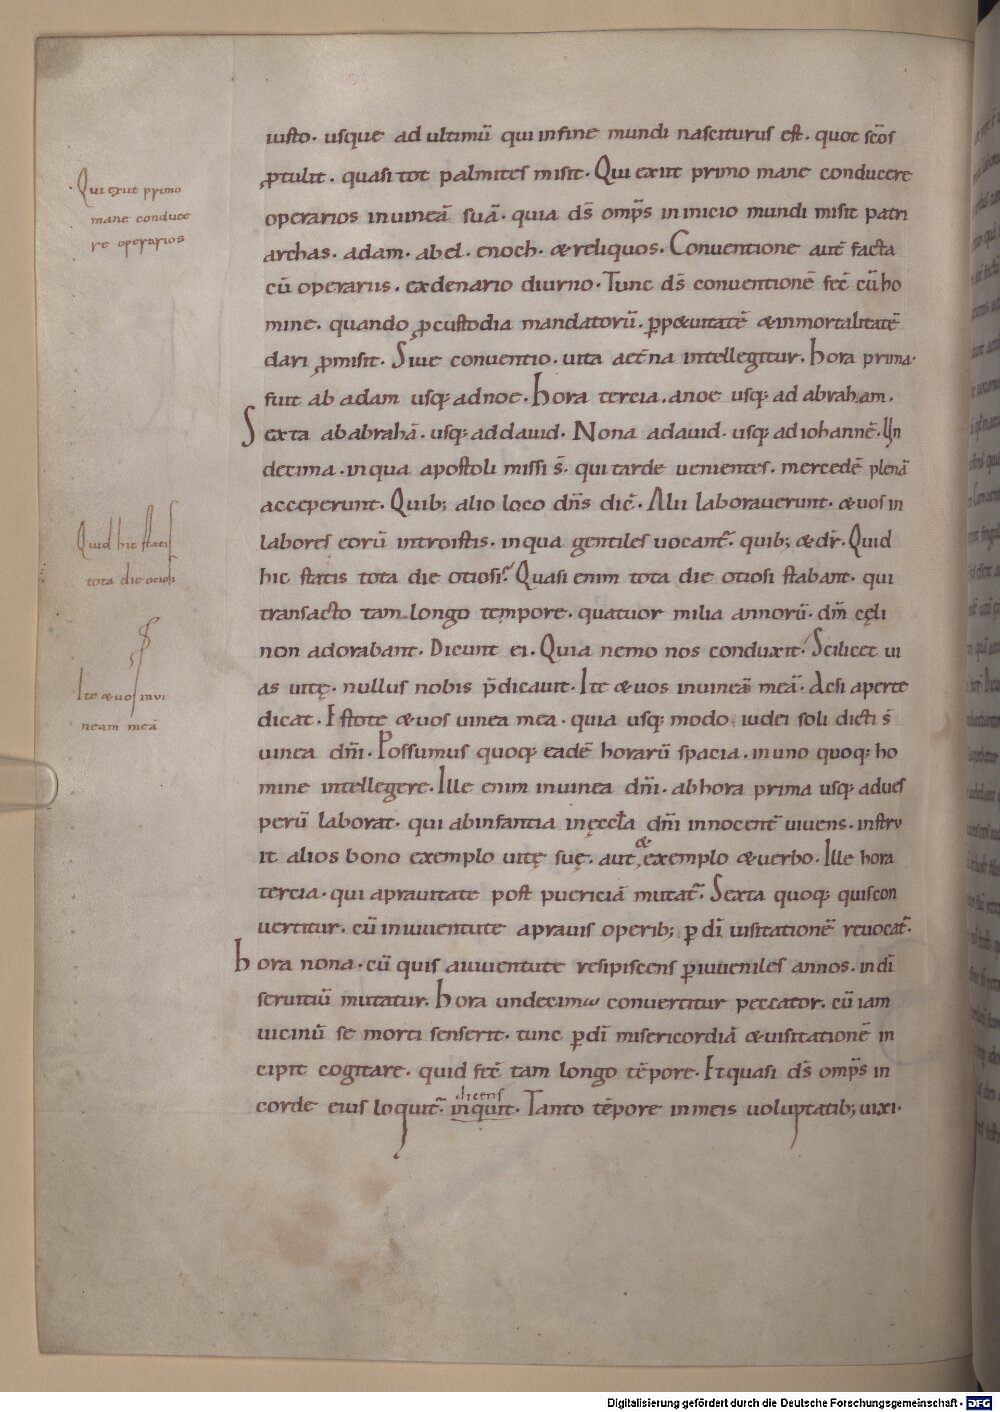 iusto. usque ad ultimū qui in fine mundi nasciturus est. quot sc̄os
ꝓtulit. quasi tot palmites misit. Qui exiit primo mane conducere
Qui exiit primo
mane conduce
re operarios
operarios in uineā suā. quia ds̄ omp̄s in inicio mundi misit patri
archas. adam. abel. enoch. & reliquos. Conuentione aut̄ facta
cū operariis. ex denario diurno. Tunc ds̄ conuentionē fec̄ cū ho
mine. quando ꝓ custodia mandatorū. ꝑp&uitatē & inmortalitatē
dari ꝓmisit. Siue conuentio. uita aet̄na intellegitur. hora prima.
fuit ab adam usq; ad noe. hora tercia. a noe usq; ad abraham.
Sexta ab abrahā. usq; ad dauid. Nona a dauid. usq; ad iohannē. Un
decima. in qua apostoli missi s̄. qui tarde uenientes. mercedē plenā
acceperunt. Quib; alio loco dn̄s dic̄. Alii laborauerunt. & uos in
labores eorū introistis. in qua gentiles uocant̄. quib; & dr̄. Quid
Quid hic statis
tota die otiosi
hic statis tota die otiosi? Quasi enim tota die otiosi stabant. qui
transacto tam longo tempore. quatuor milia annorū. dm̄ cęli
non adorabant. Dicunt ei. Quia nemo nos conduxit. Scilicet ui
as uitę. nullus nobis p̄dicauit. Ite & uos in uineā meā. Acsi aperte
Ite & uos in ui
neam meā
dicat. Estote & uos uinea mea. quia usq; modo iudei soli dicti s̄
uinea dm̄i. Possumus quoq; eadē horarū spacia. in uno quoq; ho
mine intellegere. Ille enim in uinea dm̄i. ab hora prima usq; ad ues
perū laborat. qui ab infantia in ęccła dm̄i innocent̄ uiuens. instru
it alios bono exemplo uitę suę. aut & exemplo & uerbo. Ille hora
tercia. qui a prauitate post puericiā mutat̄. Sexta quoq; quis con
uertitur. cū in iuuentute a prauis operib; ꝑ dī uisitationē reuocat̄.
hora nona. cū quis a iuuentute resipiscens ꝑ iuueniles annos. in dī
seruitiū mutatur. hora undecima conuertitur peccator. cū iam
uicinū se morti senserit. tunc ꝑ dī misericordiā & uisitationē in
cipit cogitare. quid fec̄ tam longo tēpore. Et quasi ds̄ omp̄s in
corde eius loquit̄. inquit. dicens Tanto tēpore in meis uoluptatib; uixi.
Digitalisierung gefördert durch die Deutsche Forschungsgemeinschaft - DFG